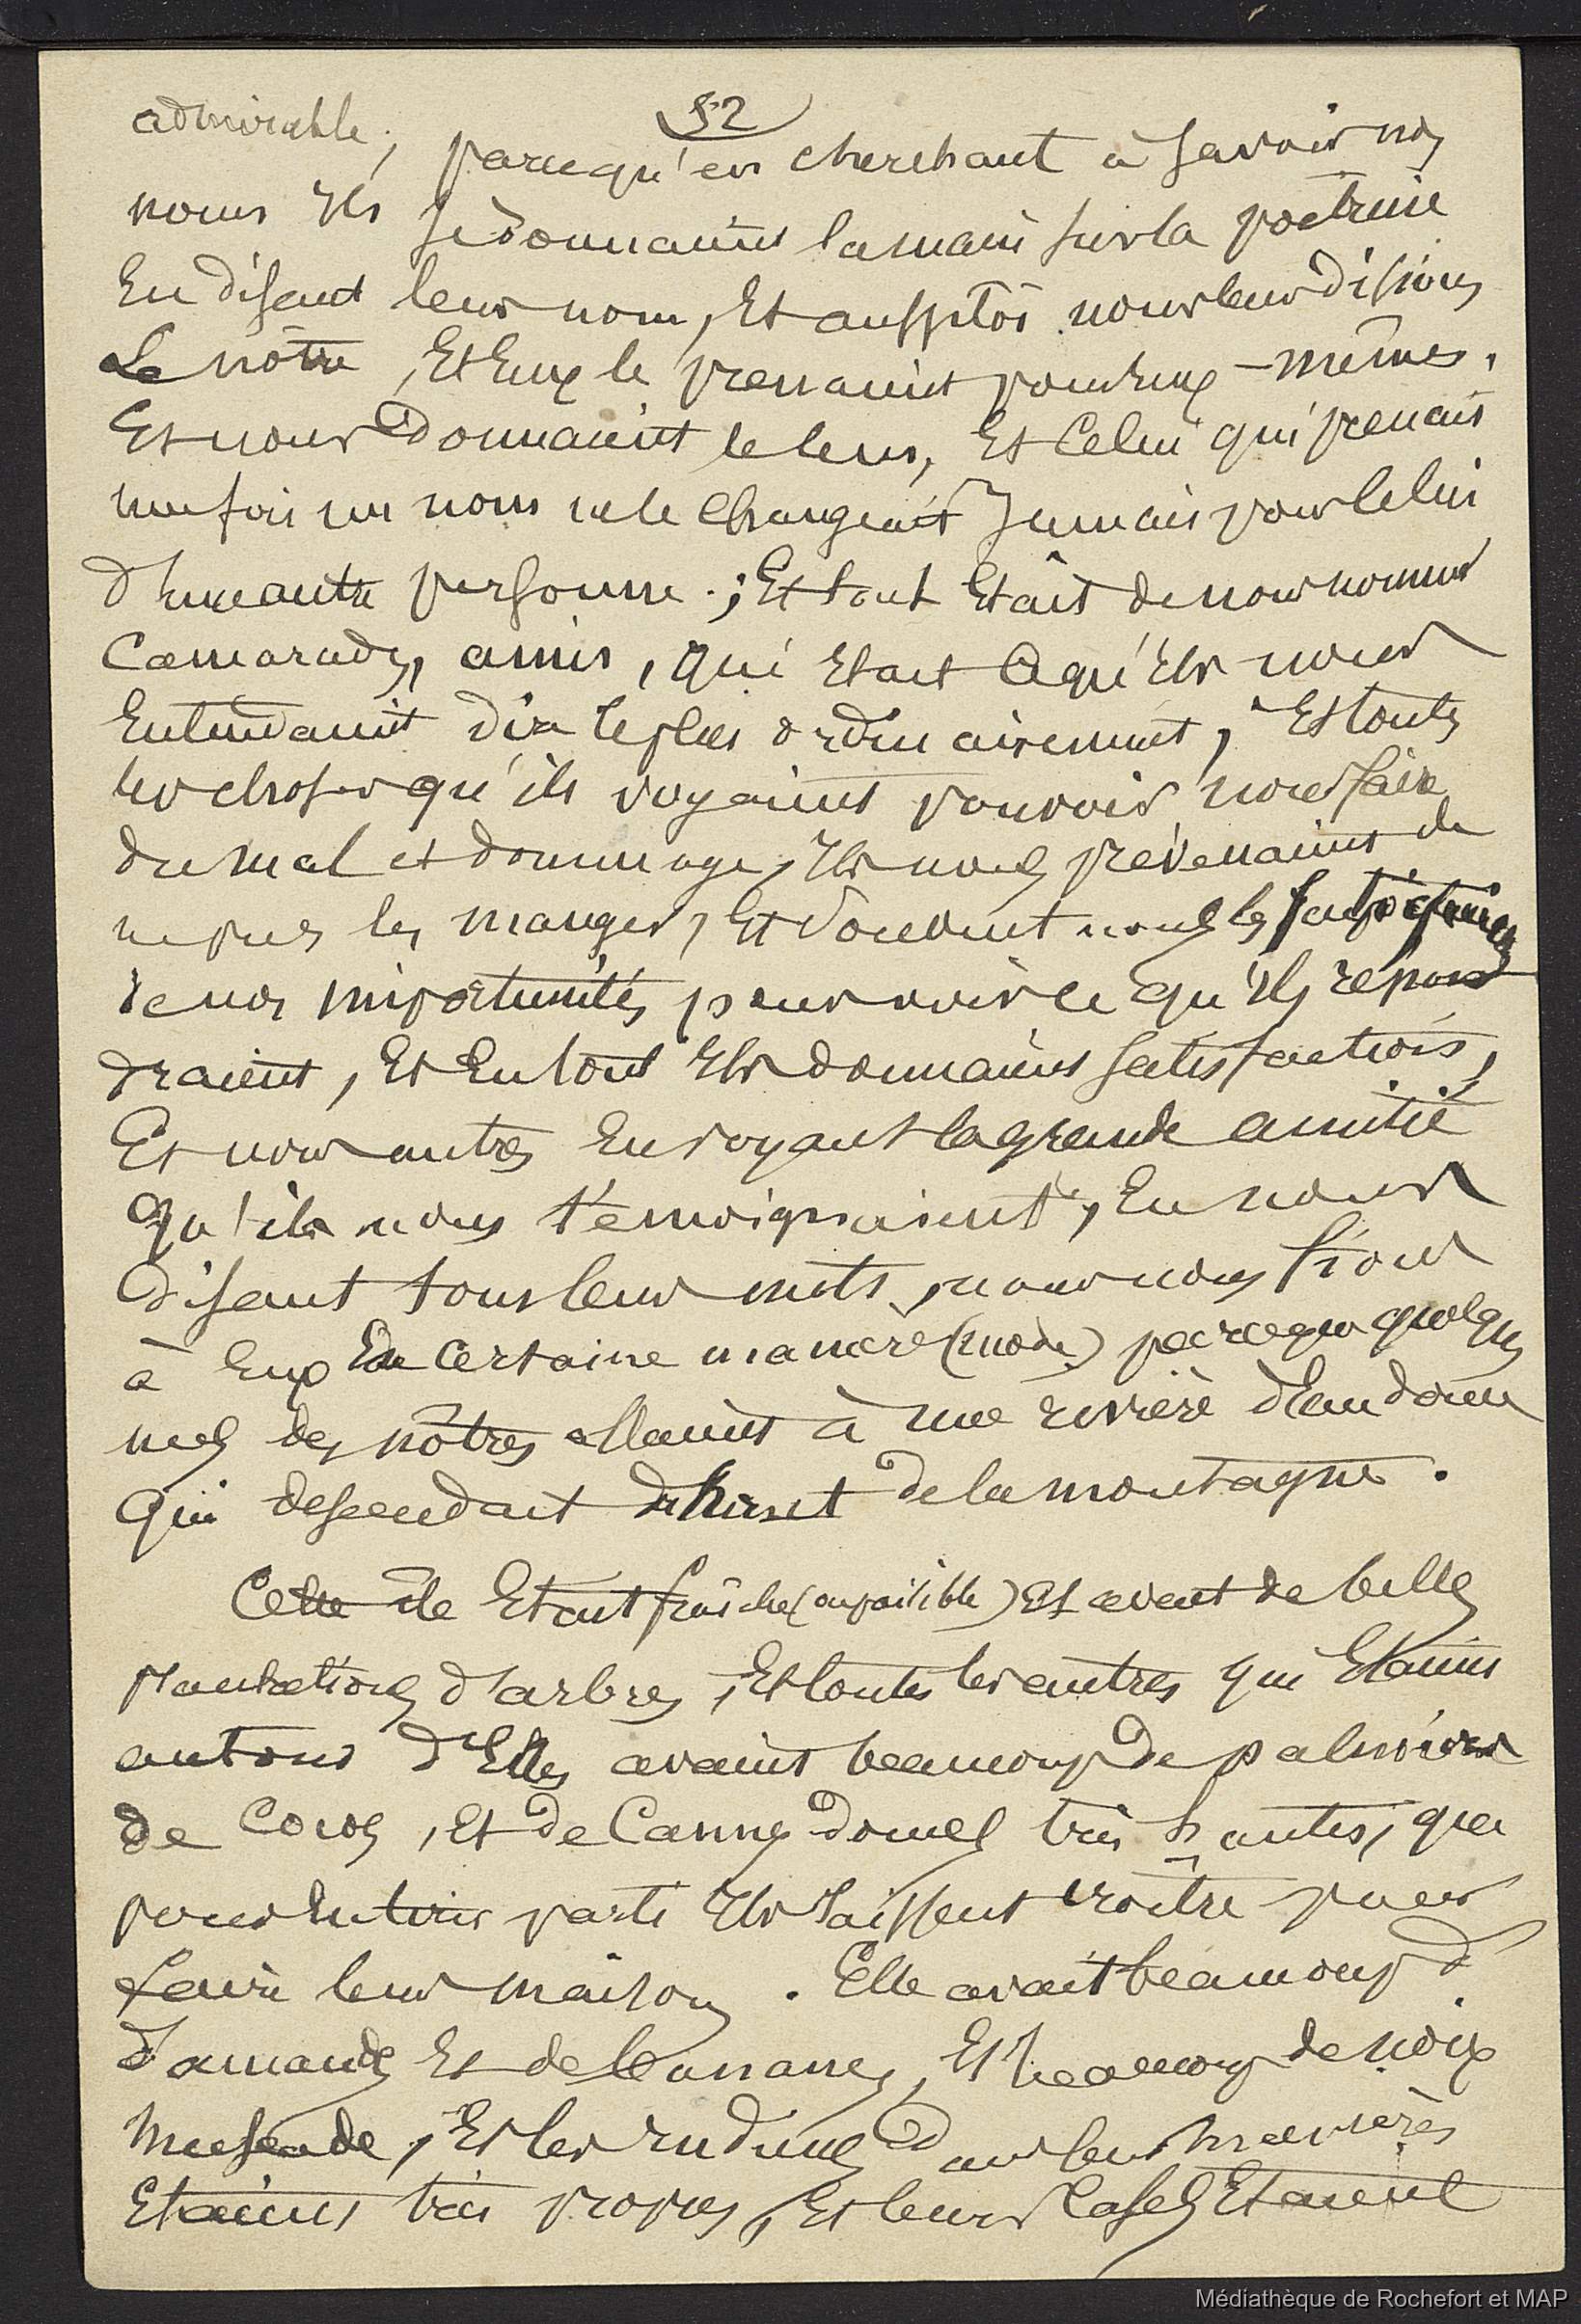 52
admirable, parcequ'en cherchant à savoir nos
noms Ils se donnaient la main sur la poitrine
En disant leur nom, Et aussitôt nous leur disions
Le nôtre, Et Eux le prenaient pour Eux-mêmes,
Et nous donnaient le leur, Et Celui qui prenait
une fois un nom ne le changeait Jamais pour celui
d'Une autre personne ; Et tout Etait de nous nommer
Camarades, amis, qui Etait ce qu'Ils nous
Entendaient dire le plus ordinairement, Et toutes
les choses qu'ils voyaient pouvoir nous faire
du mal et dommage, Ils nous prévenaient de
ne pas les manger, Et souvent nous les
de nos importunités pour voir ce qu'Ils répon
draient, Et En tout Ils donnaient satisfaction,
Et nous autres En voyant la grande amitié
qu'ils nous témoignaient, En nous
disant tous leurs mots, nous nous fions
à Eux En certaine manière (mode) parceque quelques
uns des nôtres allaient à une rivière d'Eau douce
qui descendait du haut de la montagne.
Cette île Etait fraîche (ou paisible) Et avait de belles
plantations d'arbres, Et toutes les autres qui Etaient
autour d'Elles avaient beaucoup de palmiers
de Cocos, Et de Cannes douces très hautes, que
pour En tirer parti Ils laissent croître pour
faire leurs maisons. Elle avait beaucoup d'
d'amandes Et de bananes, Et beaucoup de noix
Muscade, Et les Indiens dans leurs manières
Etaient très propres, Et leurs Cases Etaient
Médiathèque de Rochefort et MAP